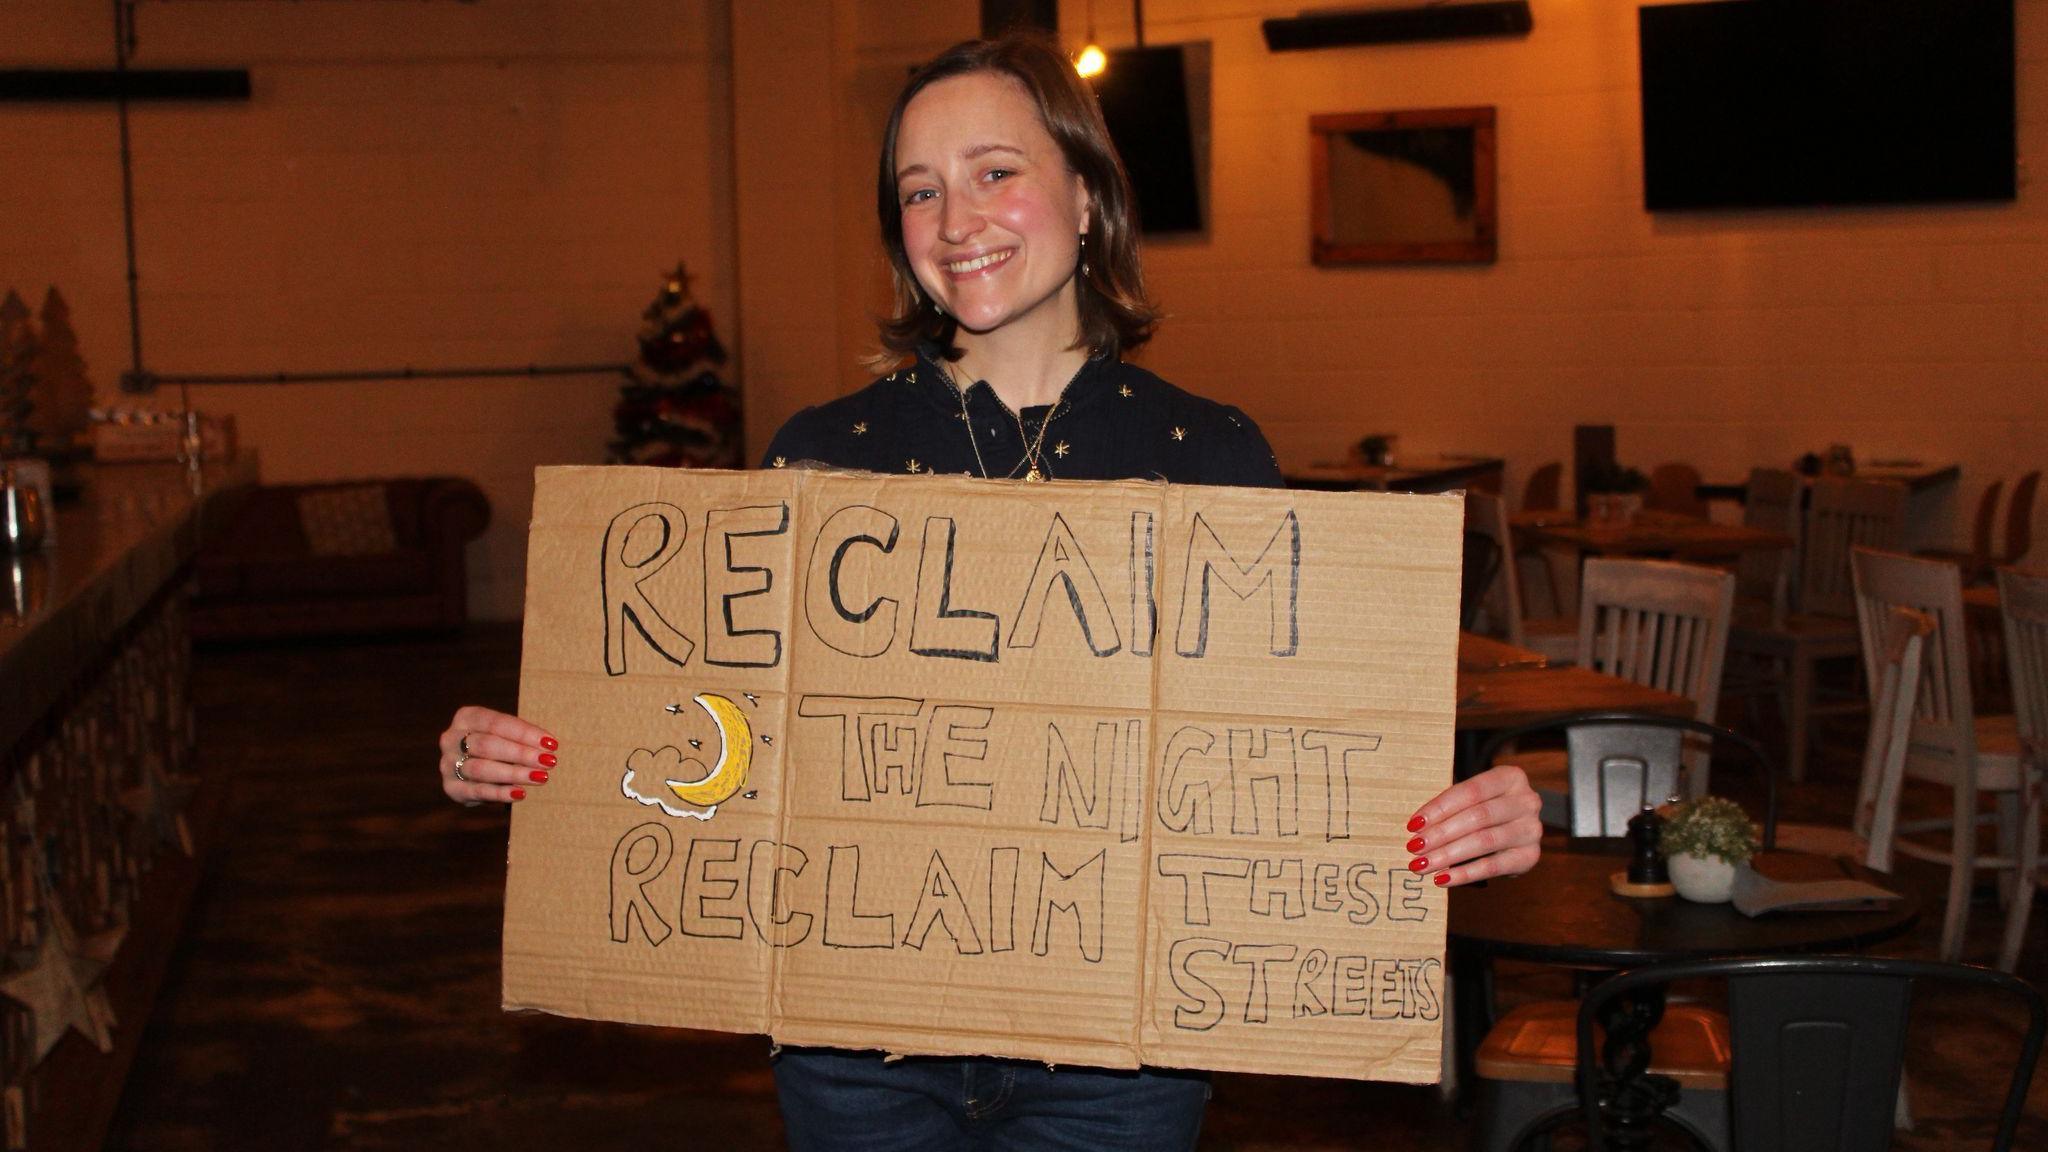 RECLAIM
THE NIGHT
RECLAIM THESE
STREETS